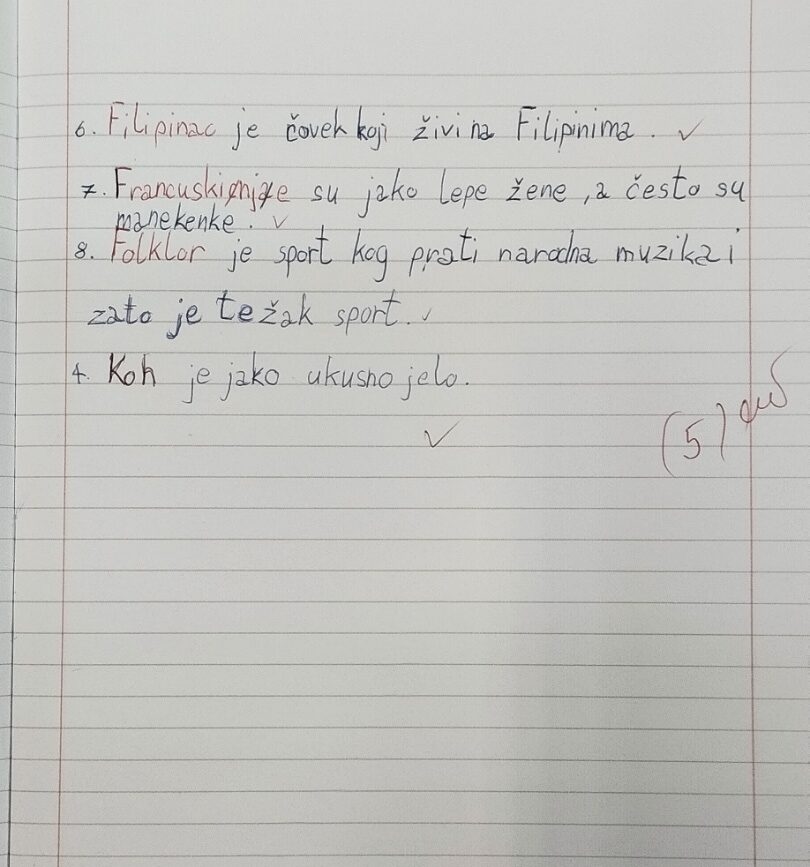 6. Filipinac je čovek koji živi na Filipinima. ✓
7. Francuskinjie su jako lepe žene, a često su
manekenke. ✓
8. Folklor je sport kog prati narodna muzika i
zato je težak sport. ✓
4. Koh je jako ukusno jelo.
✓
(5)